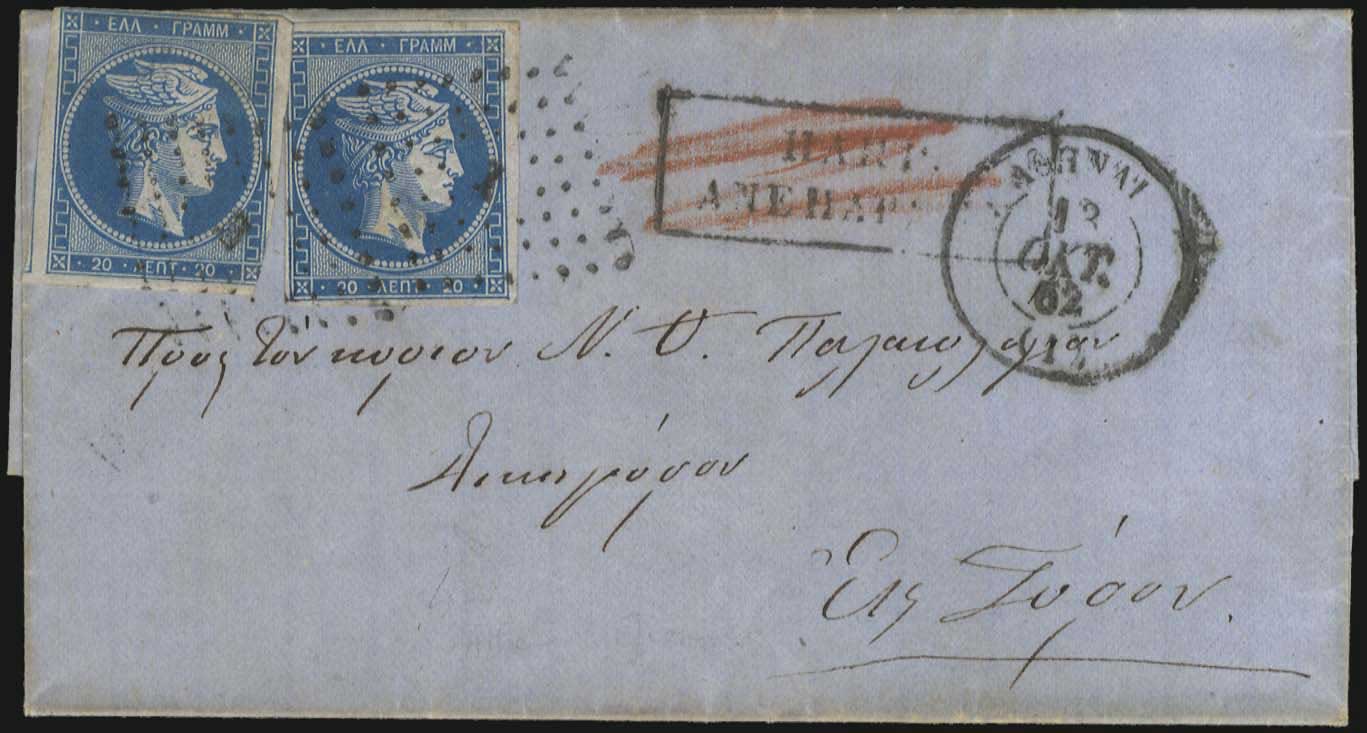 ΕΛΛ ΓΡΑΜΜ
20 ΛΕΠΤ 20
ΕΛΛ ΓΡΑΜΜ
20 ΛΕΠΤ 20
ΑΝΕΠΑΡ
ΑΘΗΝΑΙ
12
ΟΚΤ.
62
Πρὸς τὸν κύριον Ν. Θ. Παλαιολόγον
Δικηγόρον
Εἰς Σύρον.